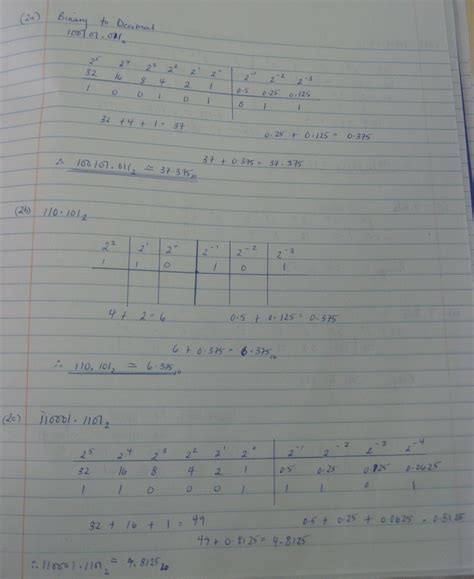 (2a) Binary to Decimal
100101.011₂
2⁵ 2⁴ 2³ 2² 2¹ 2⁰ 2⁻¹ 2⁻² 2⁻³
32 16 8 4 2 1 0.5 0.25 0.125
1 0 0 1 0 1 0 1 1
32 + 4 + 1 = 37 0.25 + 0.125 = 0.375
37 + 0.375 = 37.375
∴ 100101.011₂ ≃ 37.375₁₀
(2b) 110.101₂
2² 2¹ 2⁰ 2⁻¹ 2⁻² 2⁻³
1 1 0 1 0 1
4 + 2 = 6 0.5 + 0.125 = 0.375
6 + 0.375 = 6.375₁₀
∴ 110.101₂ ≃ 6.375₁₀
(2c) 110001.1101₂
2⁵ 2⁴ 2³ 2² 2¹ 2⁰ 2⁻¹ 2⁻² 2⁻³ 2⁻⁴
32 16 8 4 2 1 0.5 0.25 0.125 0.0625
1 1 0 0 0 1 1 1 0 1
32 + 16 + 1 = 49 0.5 + 0.25 + 0.0625 = 0.8125
49 + 0.8125 = 4.8125
∴ 110001.1101₂ = 4.8125₁₀